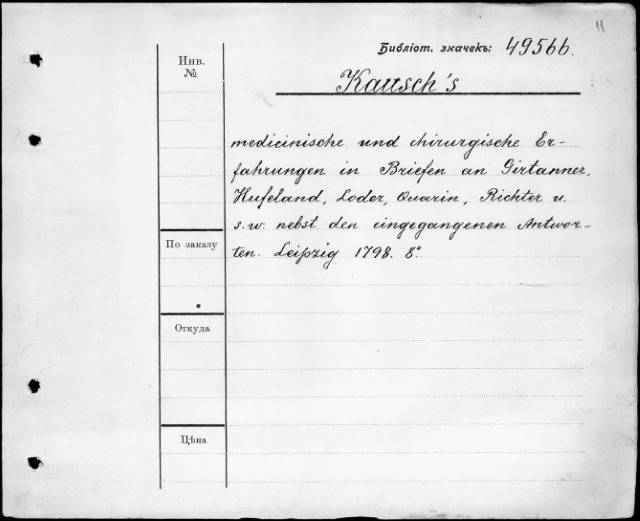 11
Библіот. значекъ: 49566.
Инв.
№
Kausch's
medicinische und chirurgische Er-
fahrungen in Briefen an Girtanner,
Hufeland, Loder, Quarin, Richter u.
s. w. nebst den eingegangenen Antwor-
ten. Leipzig 1798. 8°
По заказу
Откуда
Цѣна